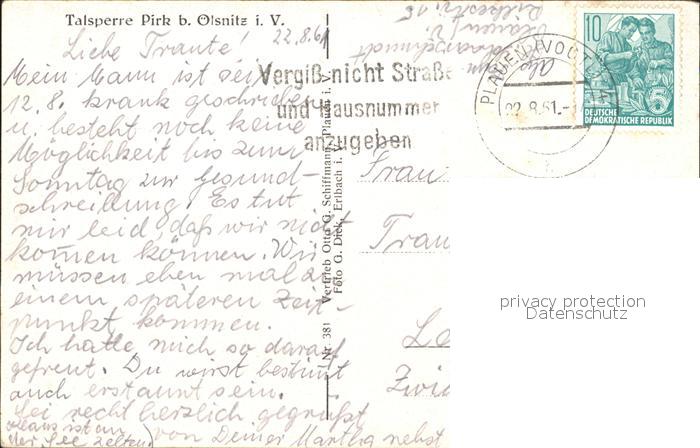 Talsperre Pirk b. Ölsnitz i. V.
Liebe Traute! 22.8.61
Mein Mann ist seit
12.8. krank geschrieben
u. besteht noch keine
Möglichkeit bis zum
Sonntag zur Gesund-
schreibung. Es tut
mir leid, daß wir nicht
kommen können. Wir
müssen eben mal zu
einem späteren Zeit-
punkt kommen.
Ich hatte mich so darauf
gefreut. Du wirst bestimmt
auch erstaunt sein.
Sei recht herzlich gegrüßt
von Deiner Martha nebst
Klaus ist am
der See zelten)
Vergiß nicht Straße
und Hausnummer
anzugeben
PLAUEN (VOGTL)
22.8.61.-
10
5
DEUTSCHE
DEMOKRATISCHE REPUBLIK
Plauen i. V.
Nr. 381 Vertrieb Otto G. Schiffmann, Plauen i. V.
Foto G. Dick, Erlbach i. V.
Frau
Trau
Zwi
privacy protection
Datenschutz